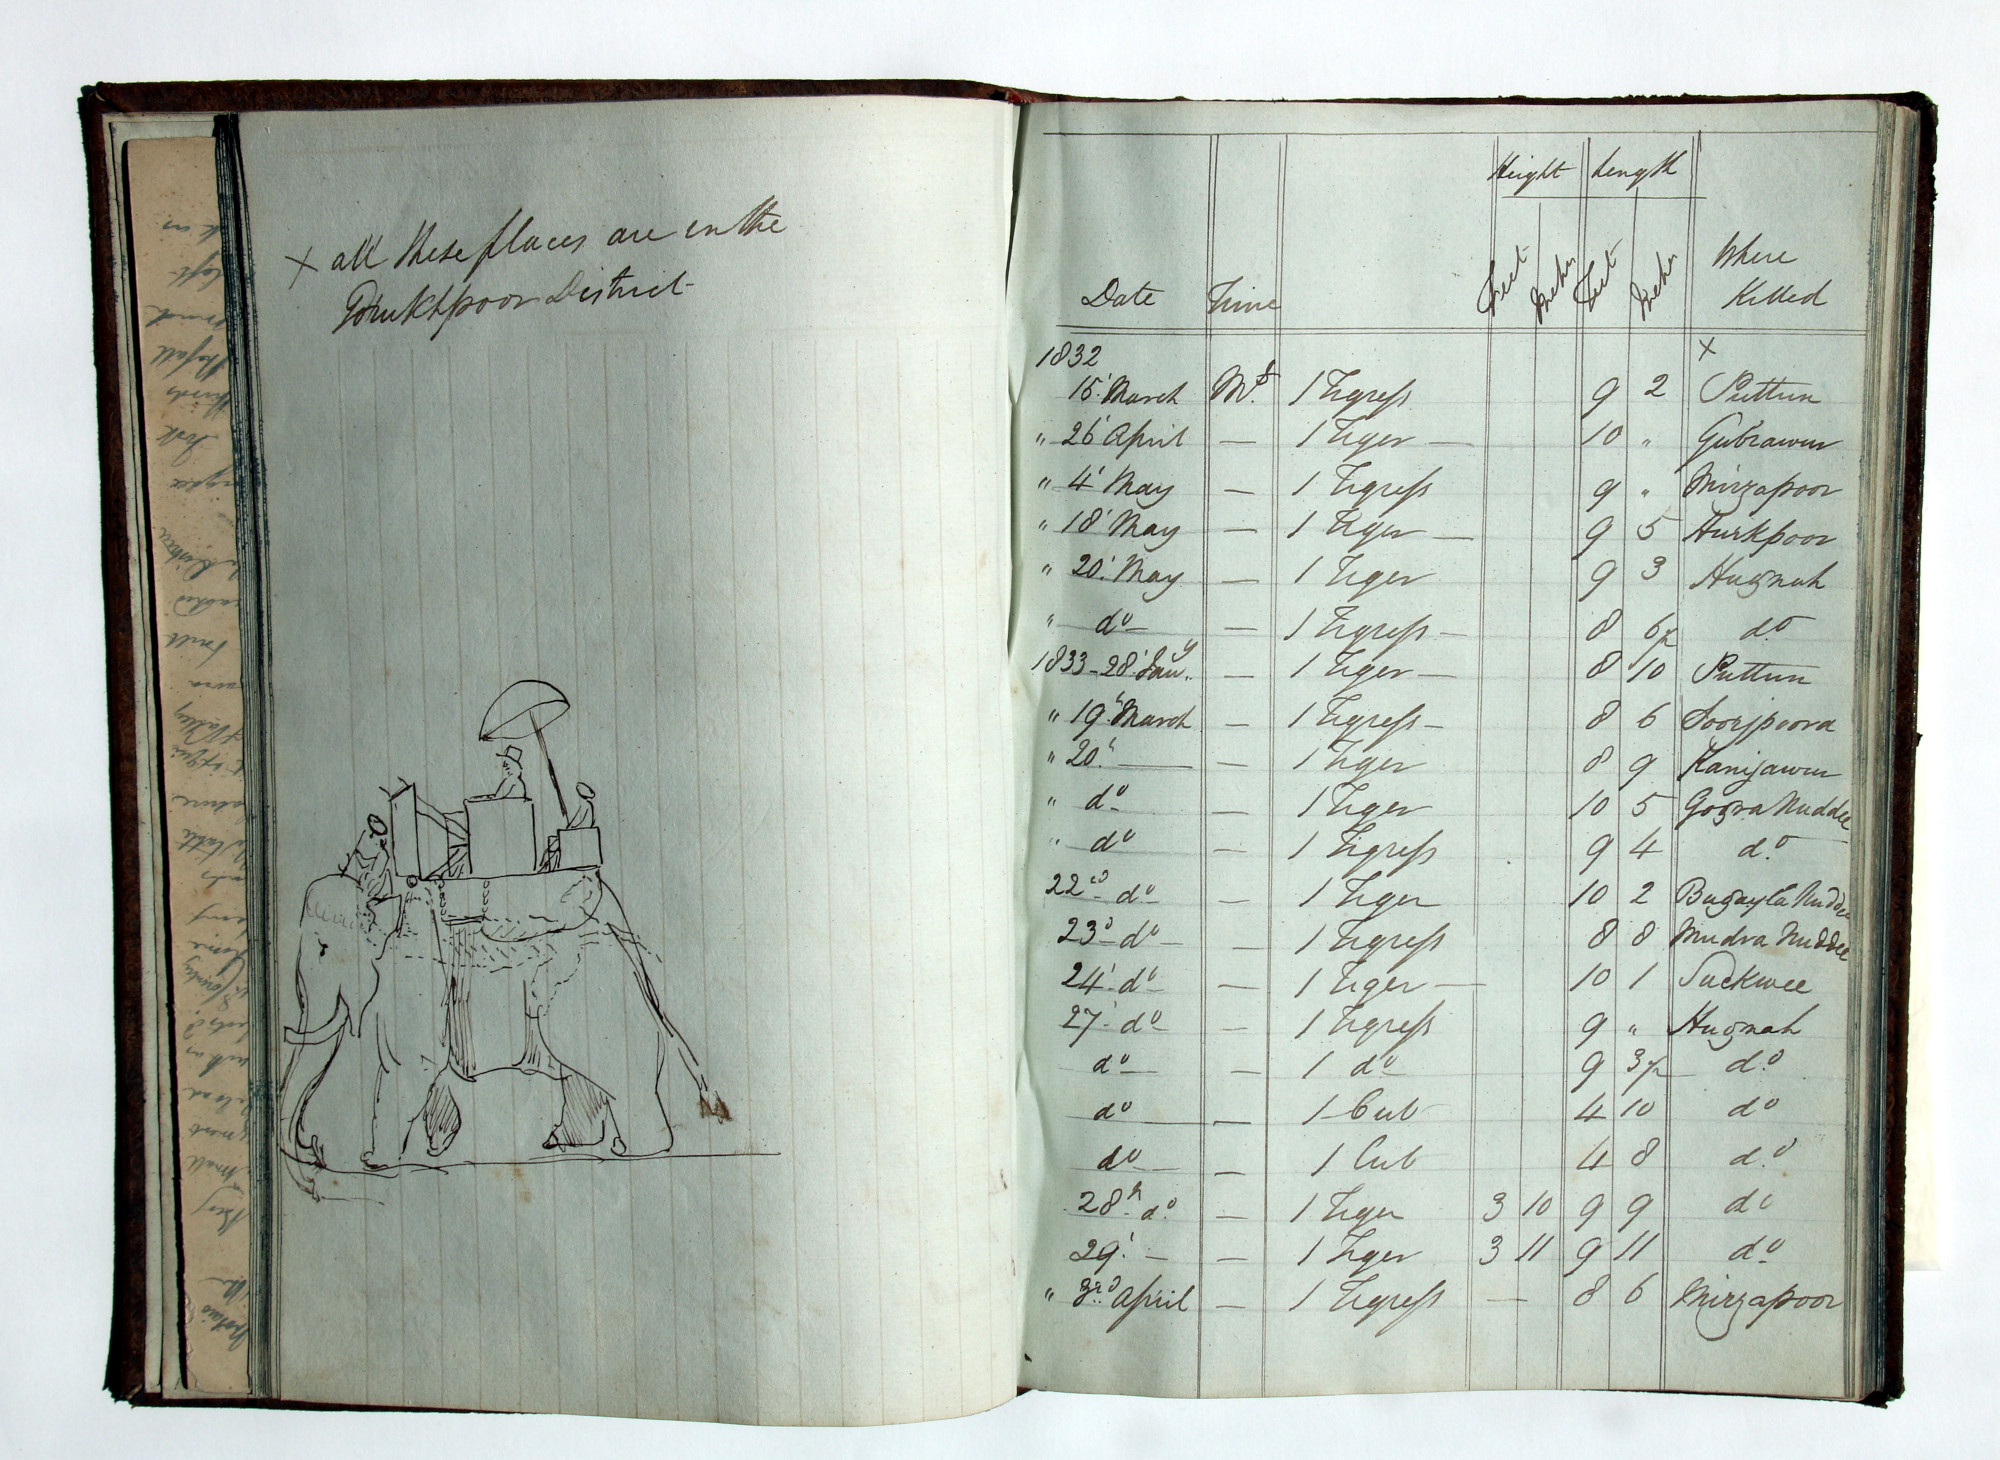 × all these places are in the
District
Height Length
Feet Inches Feet Inches
Date Time Where Killed
1832 ×
15' March Md. 1 Tigress 9 2 Puttun
" 26' April — 1 Tiger — 10 " Gubrawun
" 4' May — 1 Tigress 9 " Mirzapoor
" 18' May — 1 Tiger — 9 5 Hurkpoor
" 20' May — 1 Tiger 9 3 Hugnah
" do — 1 Tigress — 8 6½ do
1833 - 28' Jany. — 1 Tiger — 8 10 Puttun
" 19' March — 1 Tigress — 8 6 Soorjpoora
" 20' — — 1 Tiger 8 9 Kanijawun
" do — 1 Tiger 10 5 Gogra Nuddee
" do — 1 Tigress 9 4 do
22d do — 1 Tiger 10 2 Bugayta Nuddee
23d do — 1 Tigress 8 8 Mudra Nuddee
24' do — 1 Tiger — 10 1 Suckwee
27' do — 1 Tigress 9 " Hugnah
do — 1 do 9 3½ do
do — 1 Cub 4 10 do
do — 1 Cub 4 8 do
28th do — 1 Tiger 3 10 9 9 do
29' — — 1 Tiger 3 11 9 11 do
" 3rd April — 1 Tigress — 8 6 Mirzapoor